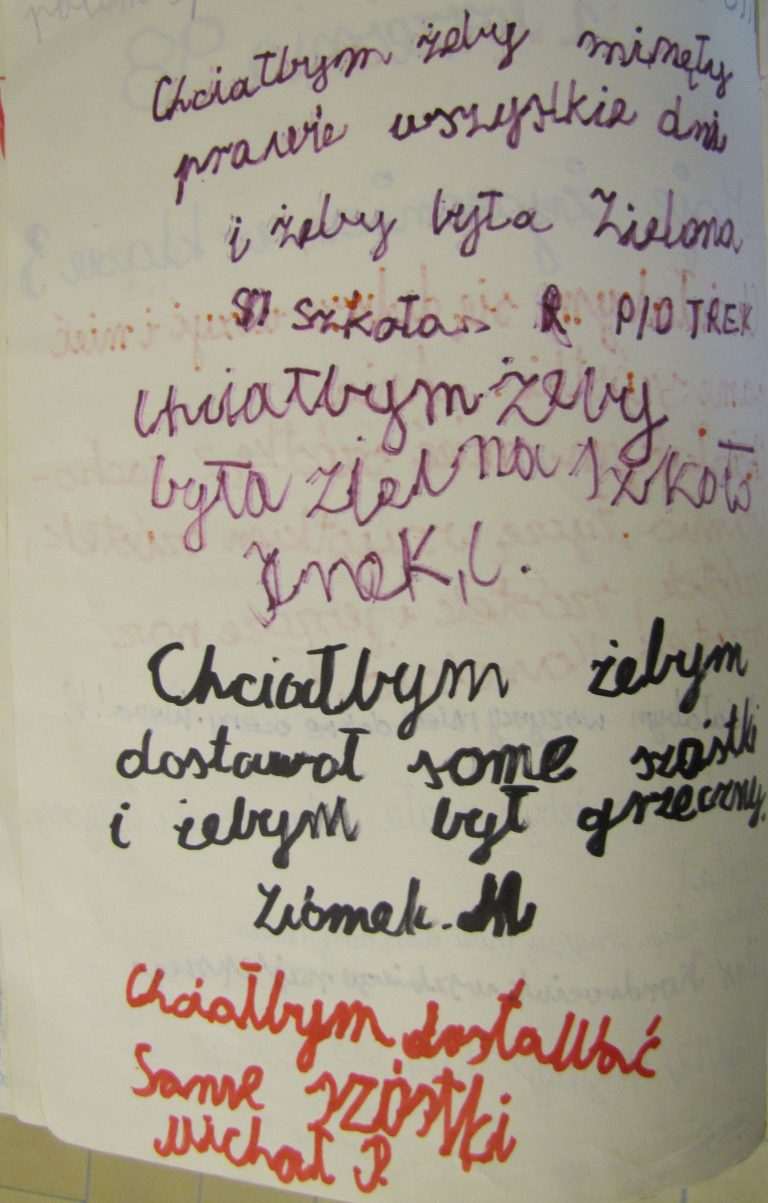 Chciałbym żeby minęły
prawie wszystkie dni
i żeby była Zielona
szkoła PIOTREK
Chciałbym żeby
była zielona szkoło
Chciałbym żebym
dostawał same szóstki
i żebym był grzeczny.
Ziomek. M
Chciałbym dostawać
Same szóstki
Michał P.